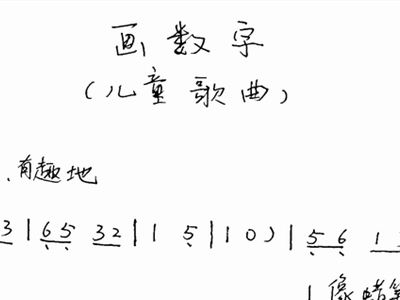 画数字
(儿童歌曲)
有趣地
3 | 6 5 3 2 | 1 5 | 1 0 ) | 5 6 1
1 像蜡